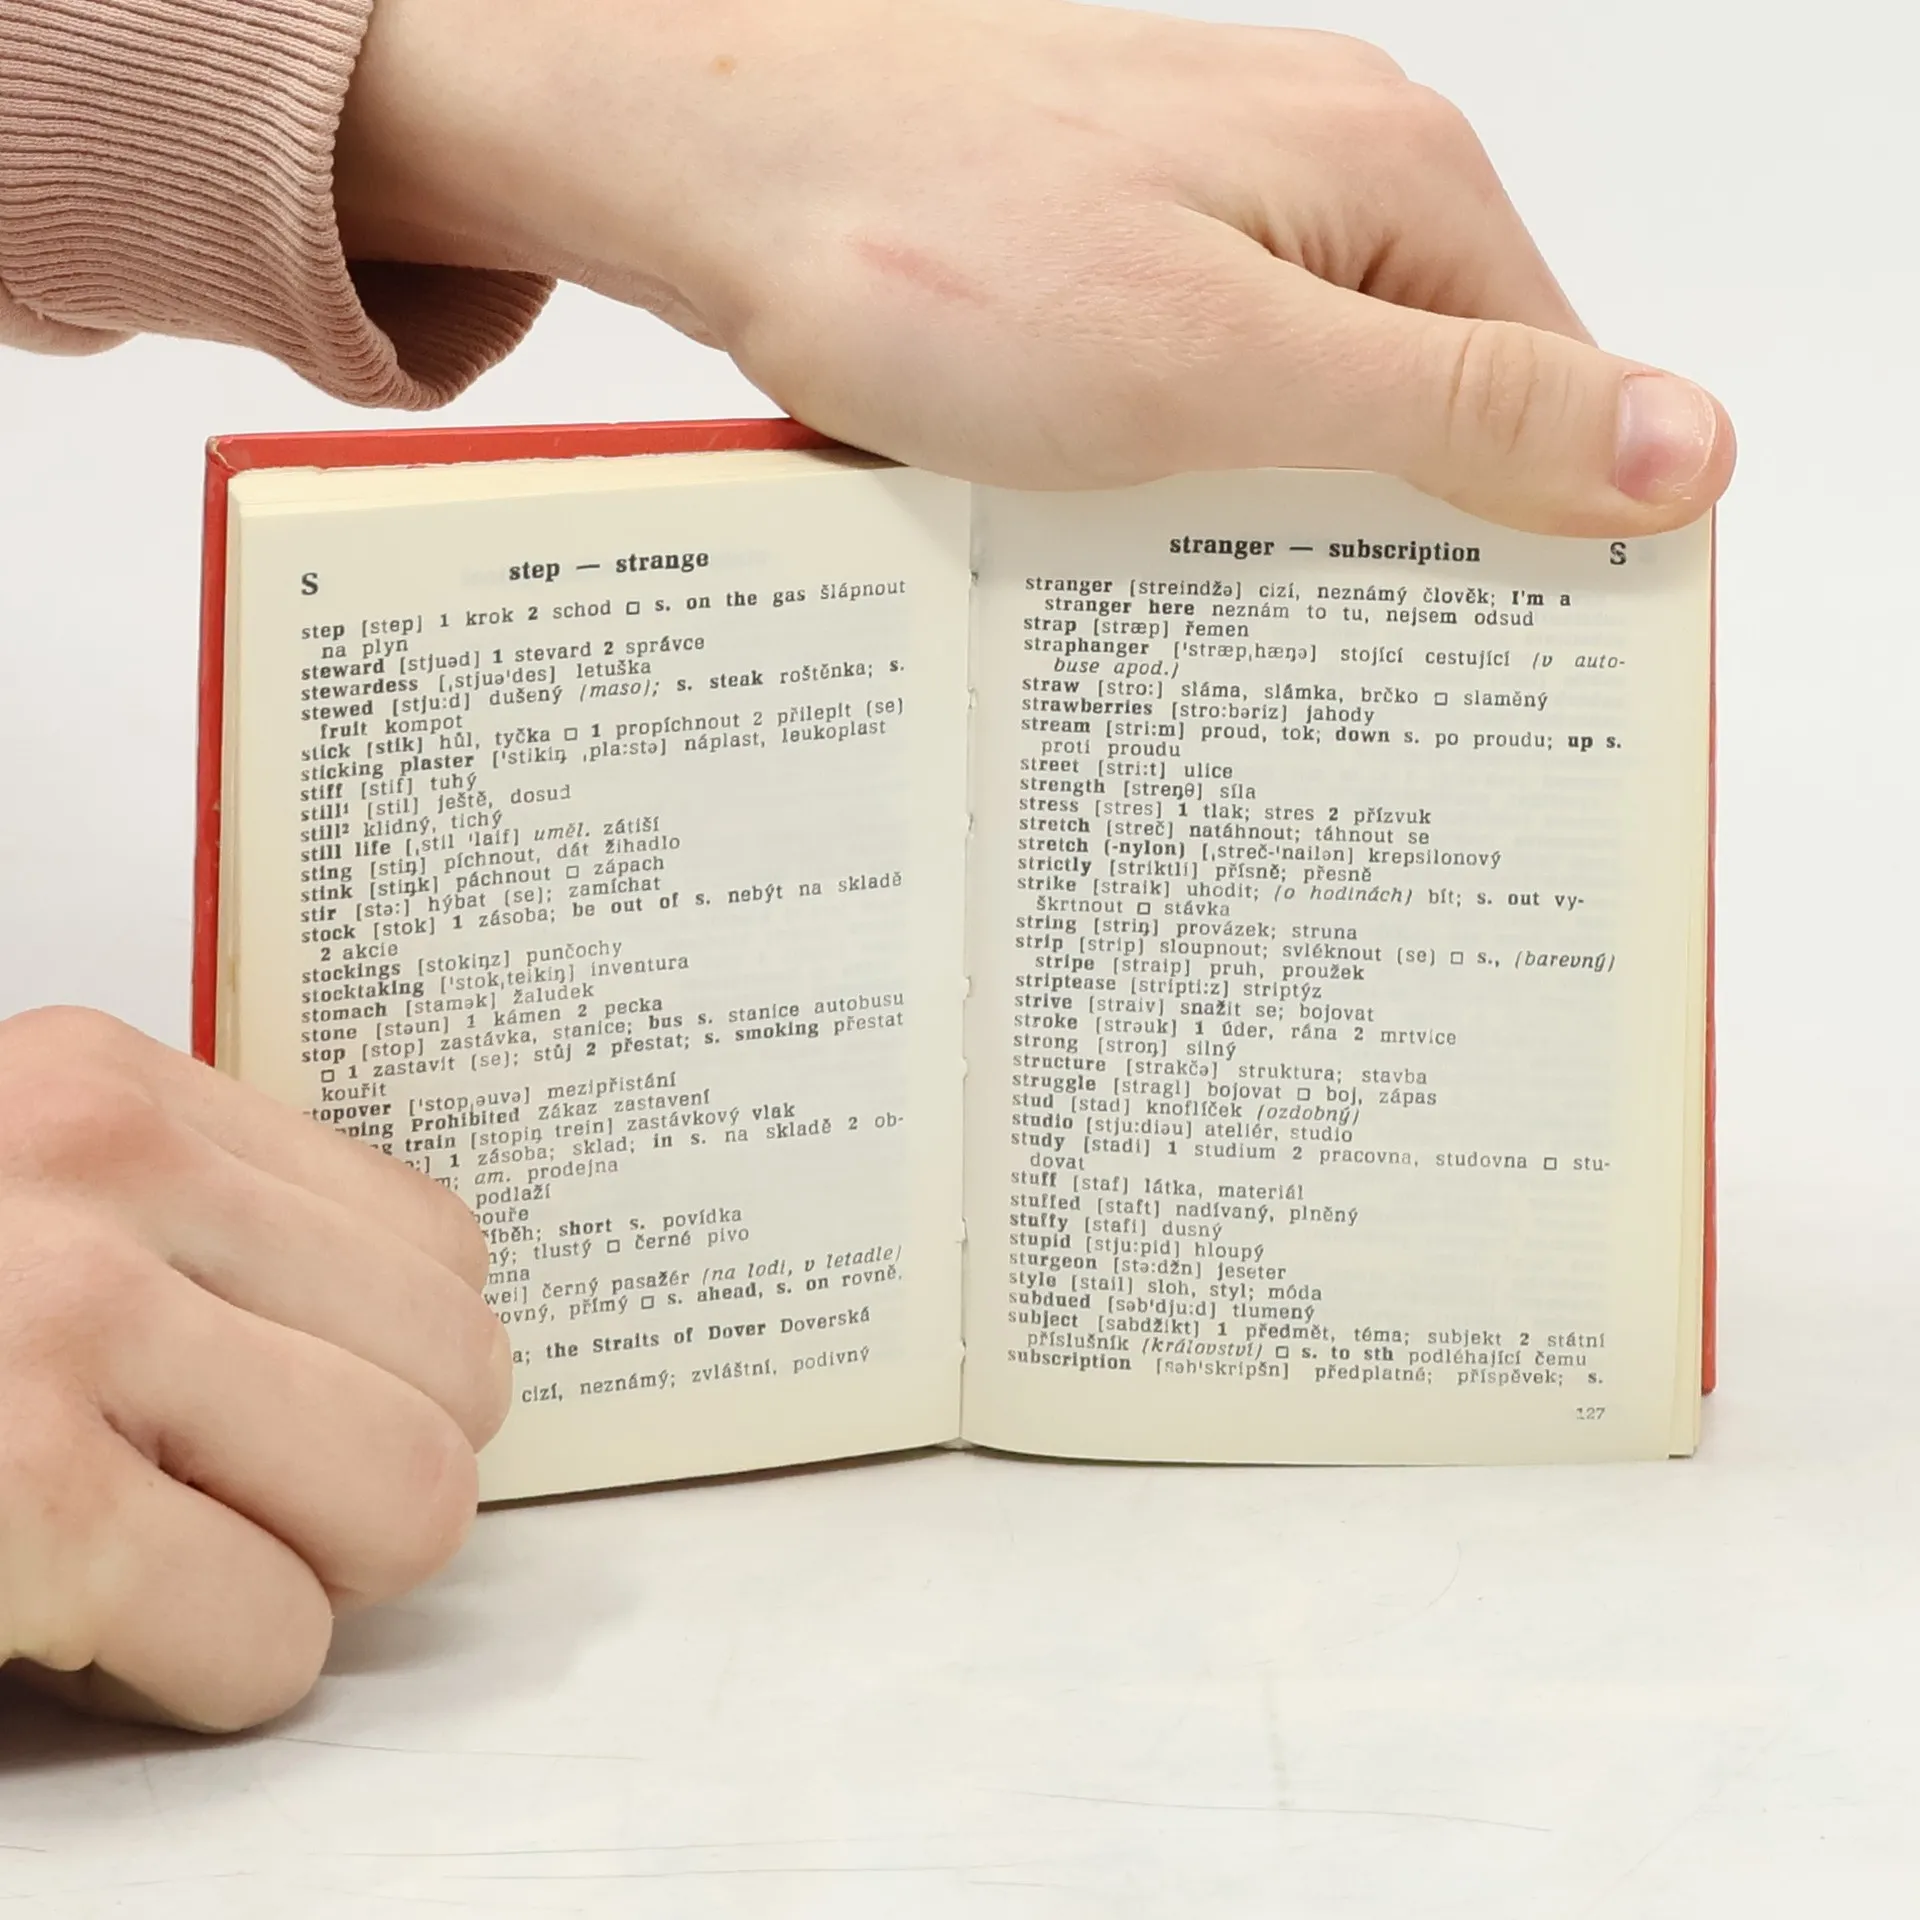 S
step — strange
step [step] 1 krok 2 schod □ s. on the gas šlápnout
na plyn
steward [stjuəd] 1 stevard 2 správce
stewardess [ˌstjuə'des] letuška
stewed [stju:d] dušený (maso); s. steak roštěnka; s.
fruit kompot
stick [stik] hůl, tyčka □ 1 propíchnout 2 přilepit (se)
sticking plaster ['stikiŋ ˌpla:stə] náplast, leukoplast
stiff [stif] tuhý
still¹ [stil] ještě, dosud
still² klidný, tichý
still life [ˌstil 'laif] uměl. zátiší
sting [stiŋ] píchnout, dát žihadlo
stink [stiŋk] páchnout □ zápach
stir [stə:] hýbat (se); zamíchat
stock [stok] 1 zásoba; be out of s. nebýt na skladě
2 akcie
stockings [stokiŋz] punčochy
stocktaking ['stokˌteikiŋ] inventura
stomach [stamək] žaludek
stone [stəun] 1 kámen 2 pecka
stop [stop] zastávka, stanice; bus s. stanice autobusu
□ 1 zastavit (se); stůj 2 přestat; s. smoking přestat
kouřit
topover ['stopˌəuvə] mezipřistání
Prohibited Zákaz zastavení
train [stopiŋ trein] zastávkový vlak
1 zásoba; sklad; in s. na skladě 2 ob-
am. prodejna
podlaží
bouře
short s. povídka
tlustý □ černé pivo
wei] černý pasažér (na lodi, v letadle)
přímý □ s. ahead, s. on rovně,
the Straits of Dover Doverská
cizí, neznámý; zvláštní, podivný
stranger — subscription
S
stranger [streindžə] cizí, neznámý člověk; I'm a
stranger here neznám to tu, nejsem odsud
strap [stræp] řemen
straphanger ['stræpˌhæŋə] stojící cestující (v auto-
buse apod.)
straw [stro:] sláma, slámka, brčko □ slaměný
strawberries [stro:bəriz] jahody
stream [stri:m] proud, tok; down s. po proudu; up s.
proti proudu
street [stri:t] ulice
strength [streŋθ] síla
stress [stres] 1 tlak; stres 2 přízvuk
stretch [streč] natáhnout; táhnout se
stretch (-nylon) [ˌstreč-'nailən] krepsilonový
strictly [striktli] přísně; přesně
strike [straik] uhodit; (o hodinách) bít; s. out vy-
škrtnout □ stávka
string [striŋ] provázek; struna
strip [strip] sloupnout; svléknout (se) □ s., (barevný)
stripe [straip] pruh, proužek
striptease [stripti:z] striptýz
strive [straiv] snažit se; bojovat
stroke [strəuk] 1 úder, rána 2 mrtvice
strong [stroŋ] silný
structure [strakčə] struktura; stavba
struggle [stragl] bojovat □ boj, zápas
stud [stad] knoflíček (ozdobný)
studio [stju:diəu] ateliér, studio
study [stadi] 1 studium 2 pracovna, studovna □ stu-
dovat
stuff [staf] látka, materiál
stuffed [staft] nadívaný, plněný
stuffy [stafi] dusný
stupid [stju:pid] hloupý
sturgeon [stə:džn] jeseter
style [stail] sloh, styl; móda
subdued [səb'dju:d] tlumený
subject [sabdžikt] 1 předmět, téma; subjekt 2 státní
příslušník (království) □ s. to sth podléhající čemu
subscription [səb'skripšn] předplatné; příspěvek; s.
127